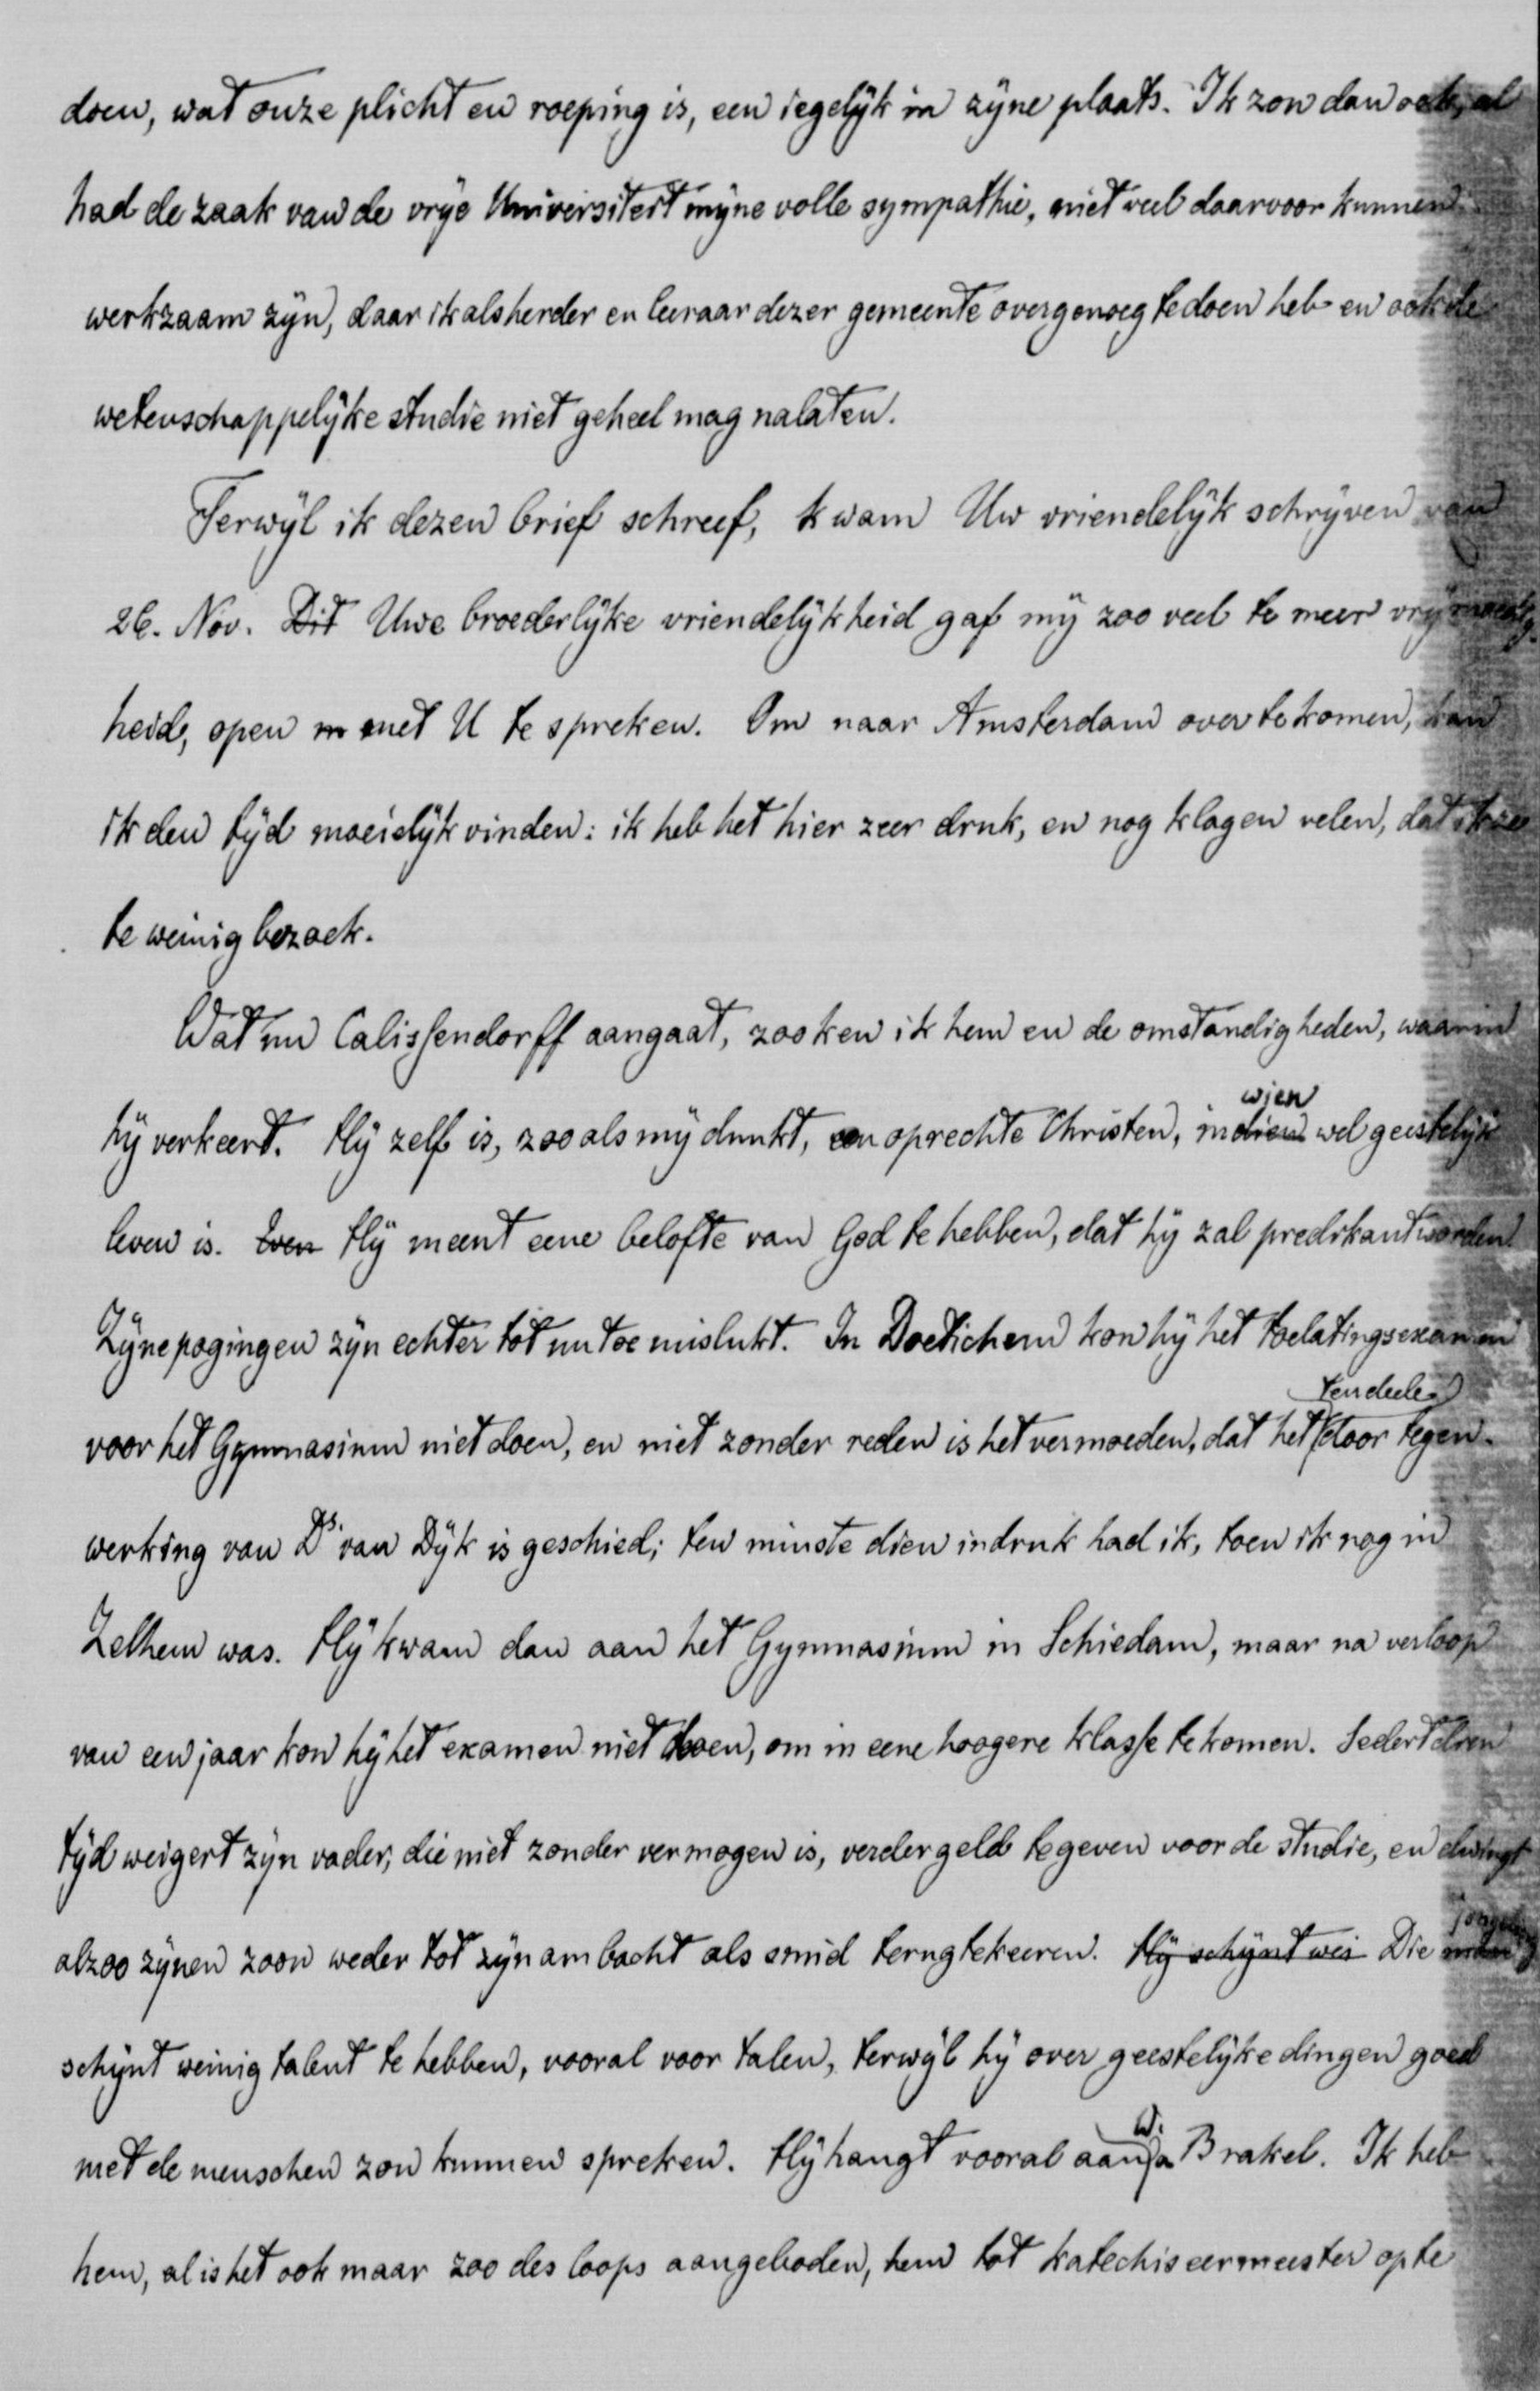 doen, wat onze plicht en roeping is, een iegelijk in zijne plaats. Ik zou dan ook, al
had de zaak van de vrije Universiteit mijne volle sympathie, niet veel daarvoor kunnen
werkzaam zijn, daar ik als herder en leeraar dezer gemeente overgenoeg te doen heb en ook de
wetenschappelijke studie niet geheel mag nalaten.
Terwijl ik dezen brief schreef, kwam Uw vriendelijk schrijven van
26. Nov. Dit Uwe broederlijke vriendelijkheid gaf mij zoo veel te meer vrijmoedig-
heid, open m met U te spreken. Om naar Amsterdam over te komen, kan
ik den tijd moeielijk vinden: ik heb het hier zeer druk, en nog klagen velen, dat ik ze
te weinig bezoek.
Wat nu Calissendorff aangaat, zoo ken ik hem en de omstandigheden, waarin
hij verkeert. Hij zelf is, zooals mij dunkt, een oprechte Christen, in dien wien wel geestelijk
leven is. Even Hij meent eene belofte van God te hebben, dat hij zal predikant worden.
Zijne pogingen zijn echter tot nu toe mislukt. In Doetichem kon hij het toelatingsexamen
voor het Gymnasium niet doen, en niet zonder reden is het vermoeden, dat het ten deele door tegen-
werking van Ds. van Dijk is geschied; ten minste dien indruk had ik, toen ik nog in
Zelhem was. Hij kwam dan aan het Gymnasium in Schiedam, maar na verloop
van een jaar kon hij het examen niet doen, om in eene hoogere klasse te komen. Sedert dien
tijd weigert zijn vader, die niet zonder vermogen is, verder geld te geven voor de studie, en dwingt
alzoo zijnen zoon weder tot zijn ambacht als smid terug te keeren. Hij schijnt wei Die man jongeling
schijnt weinig talent te hebben, vooral voor talen, terwijl hij over geestelijke dingen goed
met de menschen zou kunnen spreken. Hij hangt vooral aan W. a Brakel. Ik heb
hem, al is het ook maar zoo des loops aangeboden, hem tot katechiseermeester op te